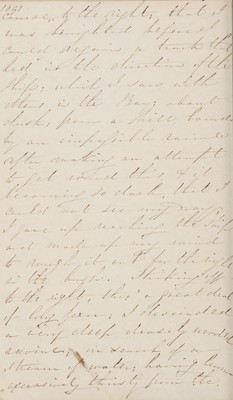 1841
to the right, that I
was benighted before I
could regain a track that
led in the direction of the
Ship, which I saw with
others in the Bay, about
dusk, from a hill, bounded
by an impassible ravine
After making an attempt
to get round this, & it
becoming so dark, that I
could not see my way,
I gave up reaching the Ship
and made up my mind
to rough it out for the night
in the bush. Striking off
to the right, thro' a great deal
of high fern, I descended
a very deep densely wooded
ravine, in search of a
stream of water, having become
excessively thirsty from the